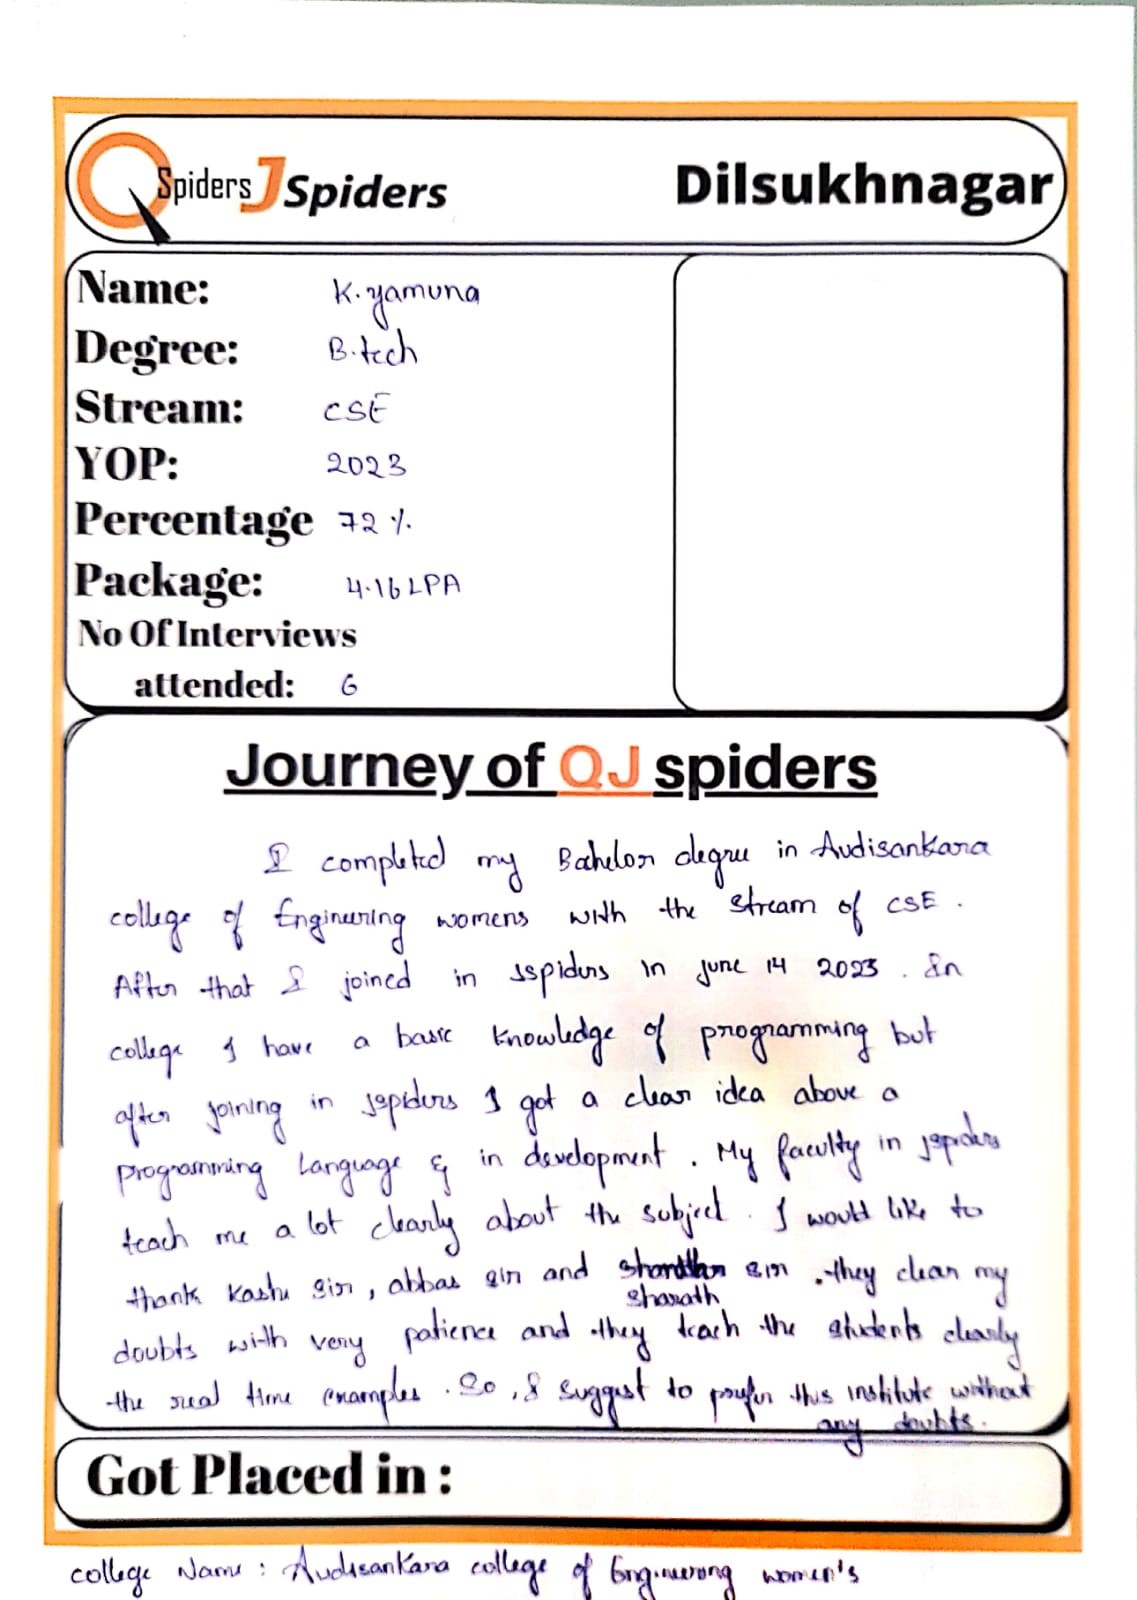 QSpiders JSpiders Dilsukhnagar
Name: K. yamuna
Degree: B.tech
Stream: CSE
YOP: 2023
Percentage 72 %.
Package: 4.16 LPA
No Of Interviews
attended: 6
Journey of QJ spiders
I completed my Bahelor degree in Audisankara
college of Engineering womens with the stream of CSE .
After that I joined in Jspiders in June 14 2023 . In
college I have a basic knowledge of programming but
after joining in jspiders I got a clear idea above a
programming Language & in development . My faculty in jspiders
teach me a lot clearly about the subject . I would like to
thank Kashu sir , abbas sir and sir . they clear my
sharath
doubts with very patience and they teach the students clearly
the real time examples . So , I suggest to prefer this institute without
any doubts .
Got Placed in :
college Name : Audisankara college of Engineering women's